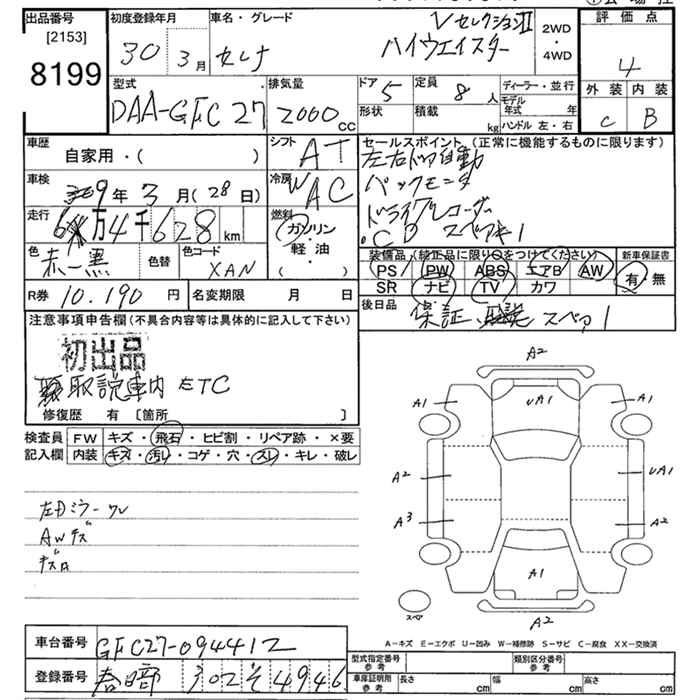 出品番号
[2153]
8199
初度登録年月
30年 3月
車名・グレード
セレナ
VセレクションII
ハイウェイスター
2WD
・
4WD
評価点
4
外装 内装
C B
型式
DAA-GFC27
排気量
2000 cc
ドア 5
定員 8人
形状
積載 kg
ディーラー・並行
モデル年式 年
ハンドル 左・右
車歴
自家用・( )
シフト AT
車検
9年 3月(28日)
冷房 WAC
走行
6万4千628km
燃料
ガソリン・
軽油・
( )
色 赤-黒
色替
色コード XAN
セールスポイント(正常に機能するものに限ります)
左右ドア自動
バックモニタ
ドライブレコーダー
CD スペアキー1
装備品(純正品に限り○をつけてください)
PS PW ABS エアB AW
SR ナビ TV カワ
新車保証書
有・無
R券 10.190円
名変期限 月 日
後日品
保証 スペア1
注意事項申告欄(不具合内容等は具体的に記入して下さい)
初出品
取説車内 ETC
修復歴 有 [箇所 ]
検査員
記入欄
FW キズ・飛石・ヒビ割・リペア跡・×要
内装 キズ・汚レ・コゲ・穴・スレ・キレ・破レ
左Dミラーワレ
AWキズ
A2
A1 UA1 A1
A2 UA1
A3 A2
A1
スペア
A2
A-キズ E-エクボ U-凹み W-補修跡 S-サビ C-腐食 XX-交換済
車台番号 GFC27-094412
登録番号 春日部 302 そ 4946
型式指定番号
参考
類別区分番号
参考
車庫証明用
参考
長さ cm 幅 cm 高さ cm